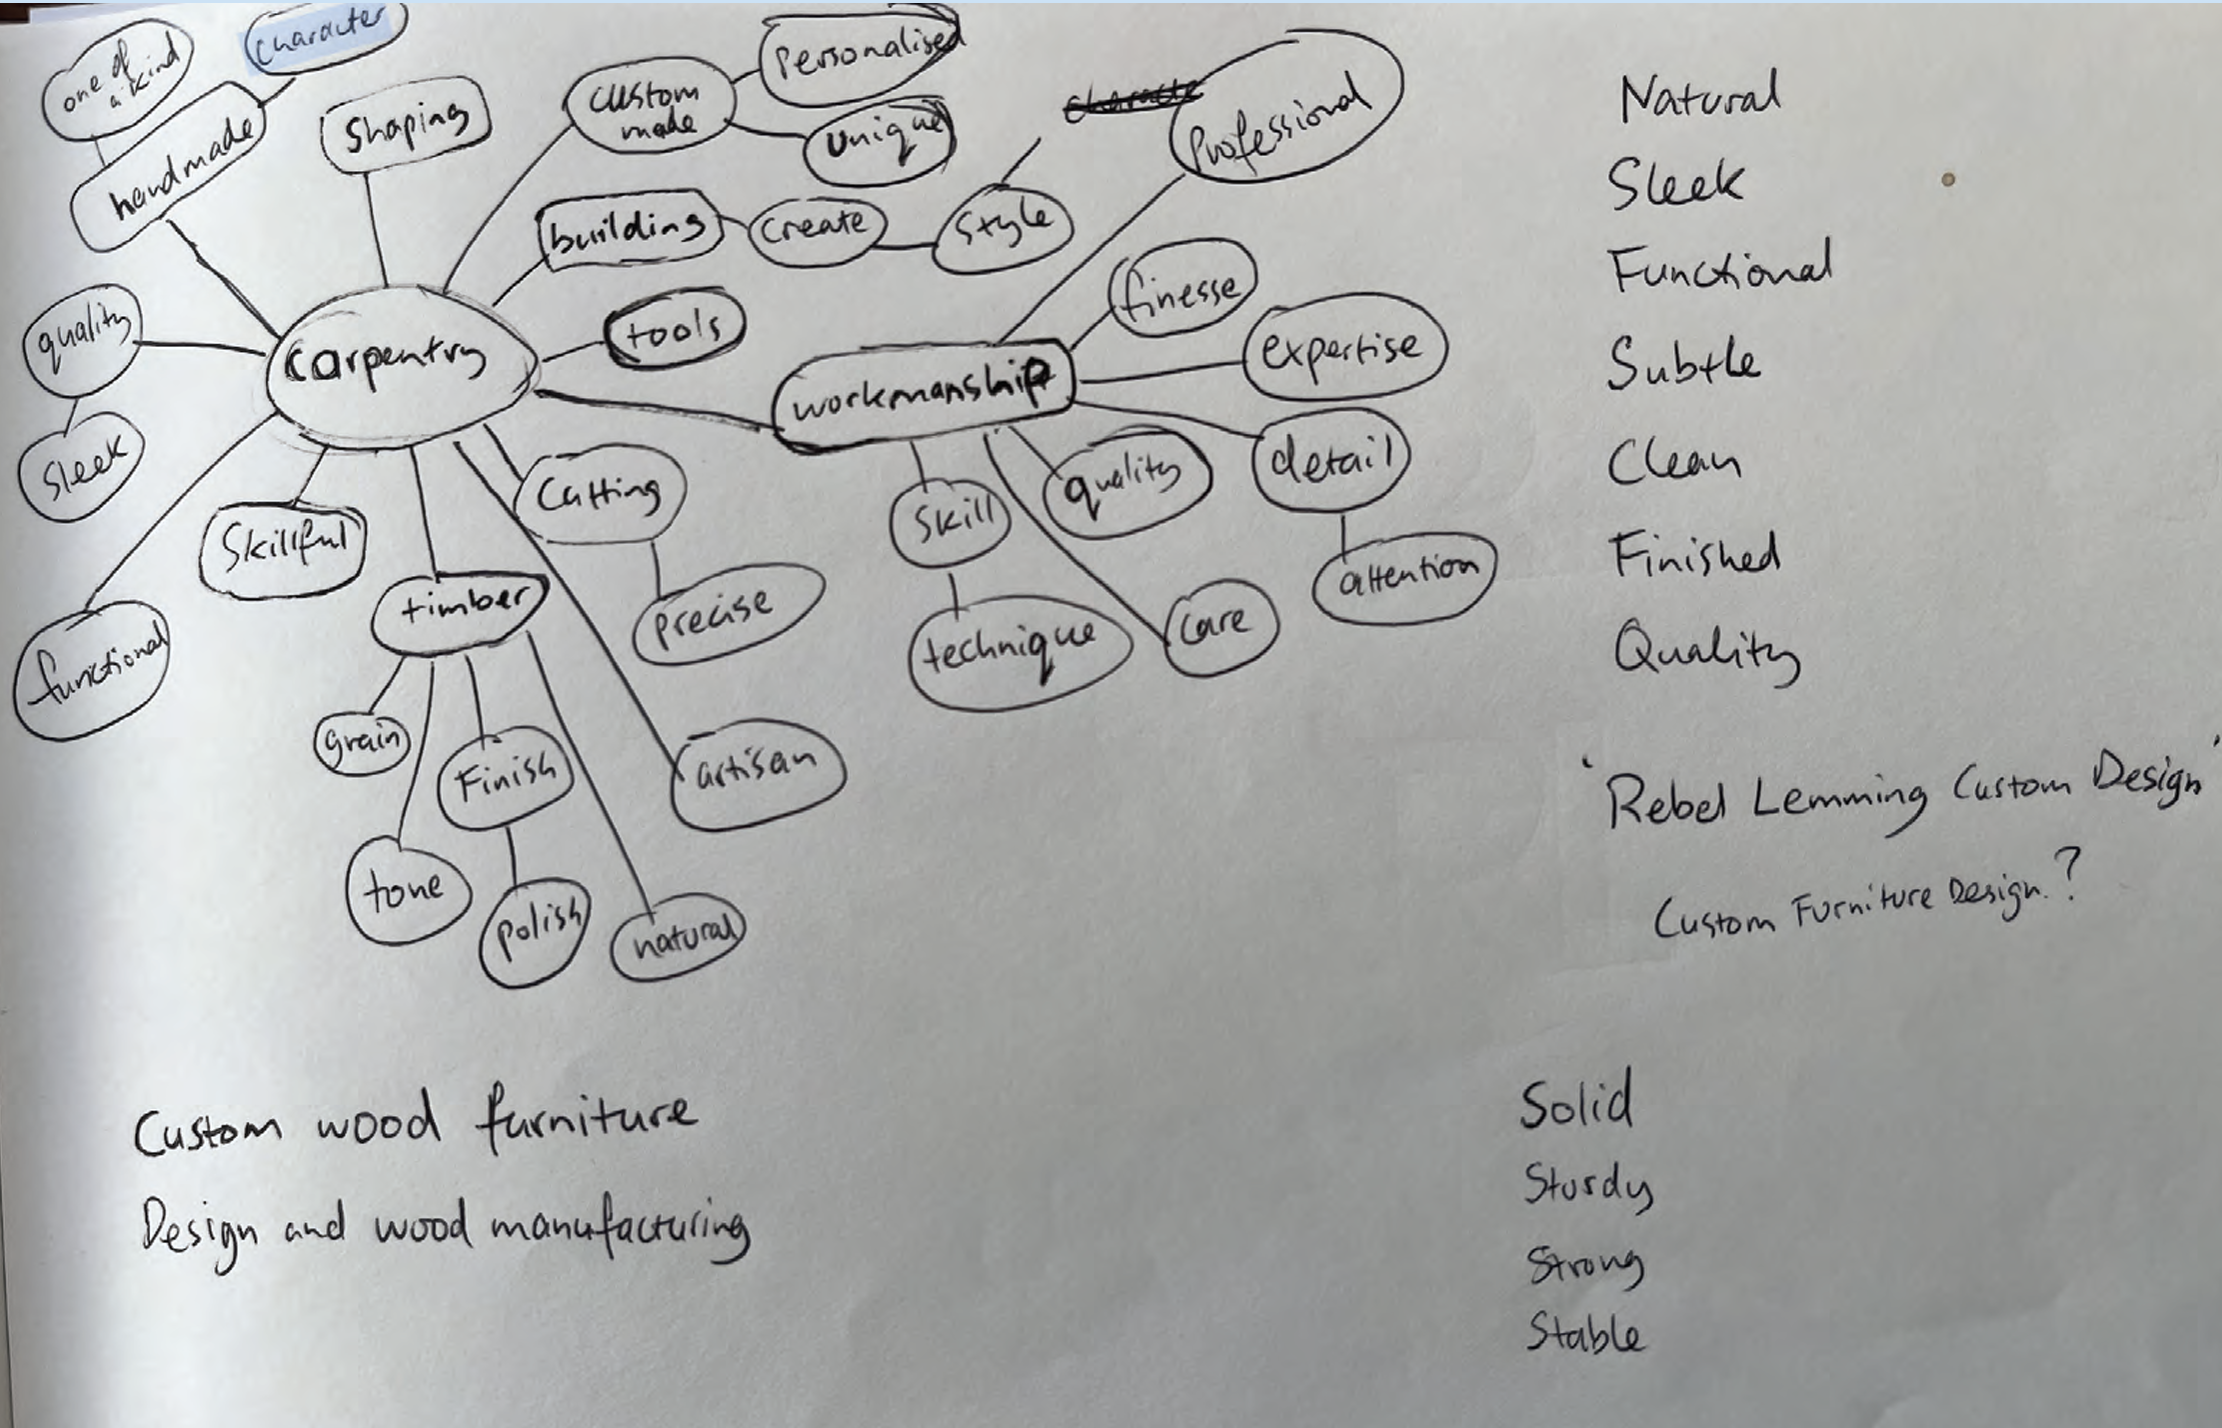 one of
a kind
character
handmade
Shaping
custom
made
Personalised
unique
characte
Professional
building
create
style
quality
sleek
carpentry
tools
workmanship
finesse
expertise
detail
attention
Skillful
Cutting
precise
skill
technique
quality
care
functional
timber
grain
Finish
artisan
tone
polish
natural
Natural
Sleek
Functional
Subtle
Clean
Finished
Quality
'Rebel Lemming Custom Design'
Custom Furniture Design.?
Custom wood furniture
Design and wood manufacturing
Solid
Sturdy
Strong
Stable